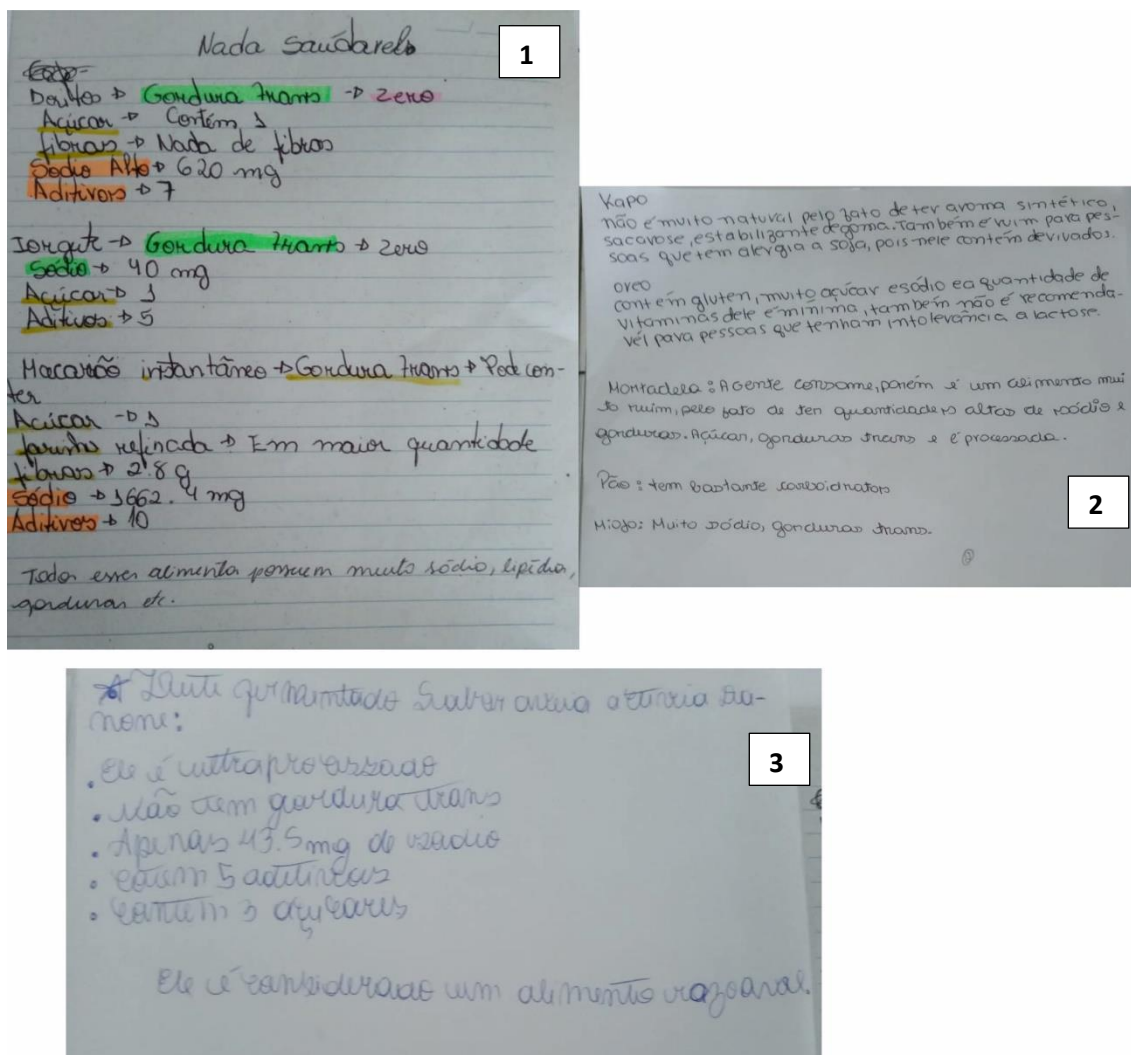 1
Nada saudavel
Doritos → Gordura trans → zero
Açúcar → Contém 1
fibras → Nada de fibras
Sódio Alto → 620 mg
Aditivos → 7
Iorgute → Gordura trans → zero
Sódio → 40 mg
Açúcar → 1
Aditivos → 5
Macarrão instantâneo → Gordura trans → Pode con-
ter
Açúcar → 1
farinha refinada → Em maior quantidade
fibras → 2.8 g
Sódio → 1662.4 mg
Aditivos → 10
Todos esses alimento possuem muito sódio, lipídio,
gorduras etc.
2
Kapo
não é muito natural pelo fato de ter aroma sintético,
sacavose, estabilizante de goma. Também é ruim para pes-
soas que tem alergia a soja, pois nele contém derivados.
oreo
contém gluten, muito açúcar e sódio e a quantidade de
vitaminas dele é mínima, também não é recomenda-
vél para pessoas que tenham intolerância a lactose.
Mortadela: A gente consome, porém é um alimento mui
to ruim, pelo fato de ter quantidades altas de sódio e
gorduras. Açúcar, gorduras trans e é processada.
Pão: tem bastante carboidratos
Miojo: Muito sódio, gorduras trans.
3
Leite fermentado Sabor aveia Da-
none:
. Ele é ultraprocessado
. Não tem gordura trans
. Apenas 43.5mg de sódio
. Contem 5 aditivos
. Contem 3 açúcares
Ele é considerado um alimento razoavel.